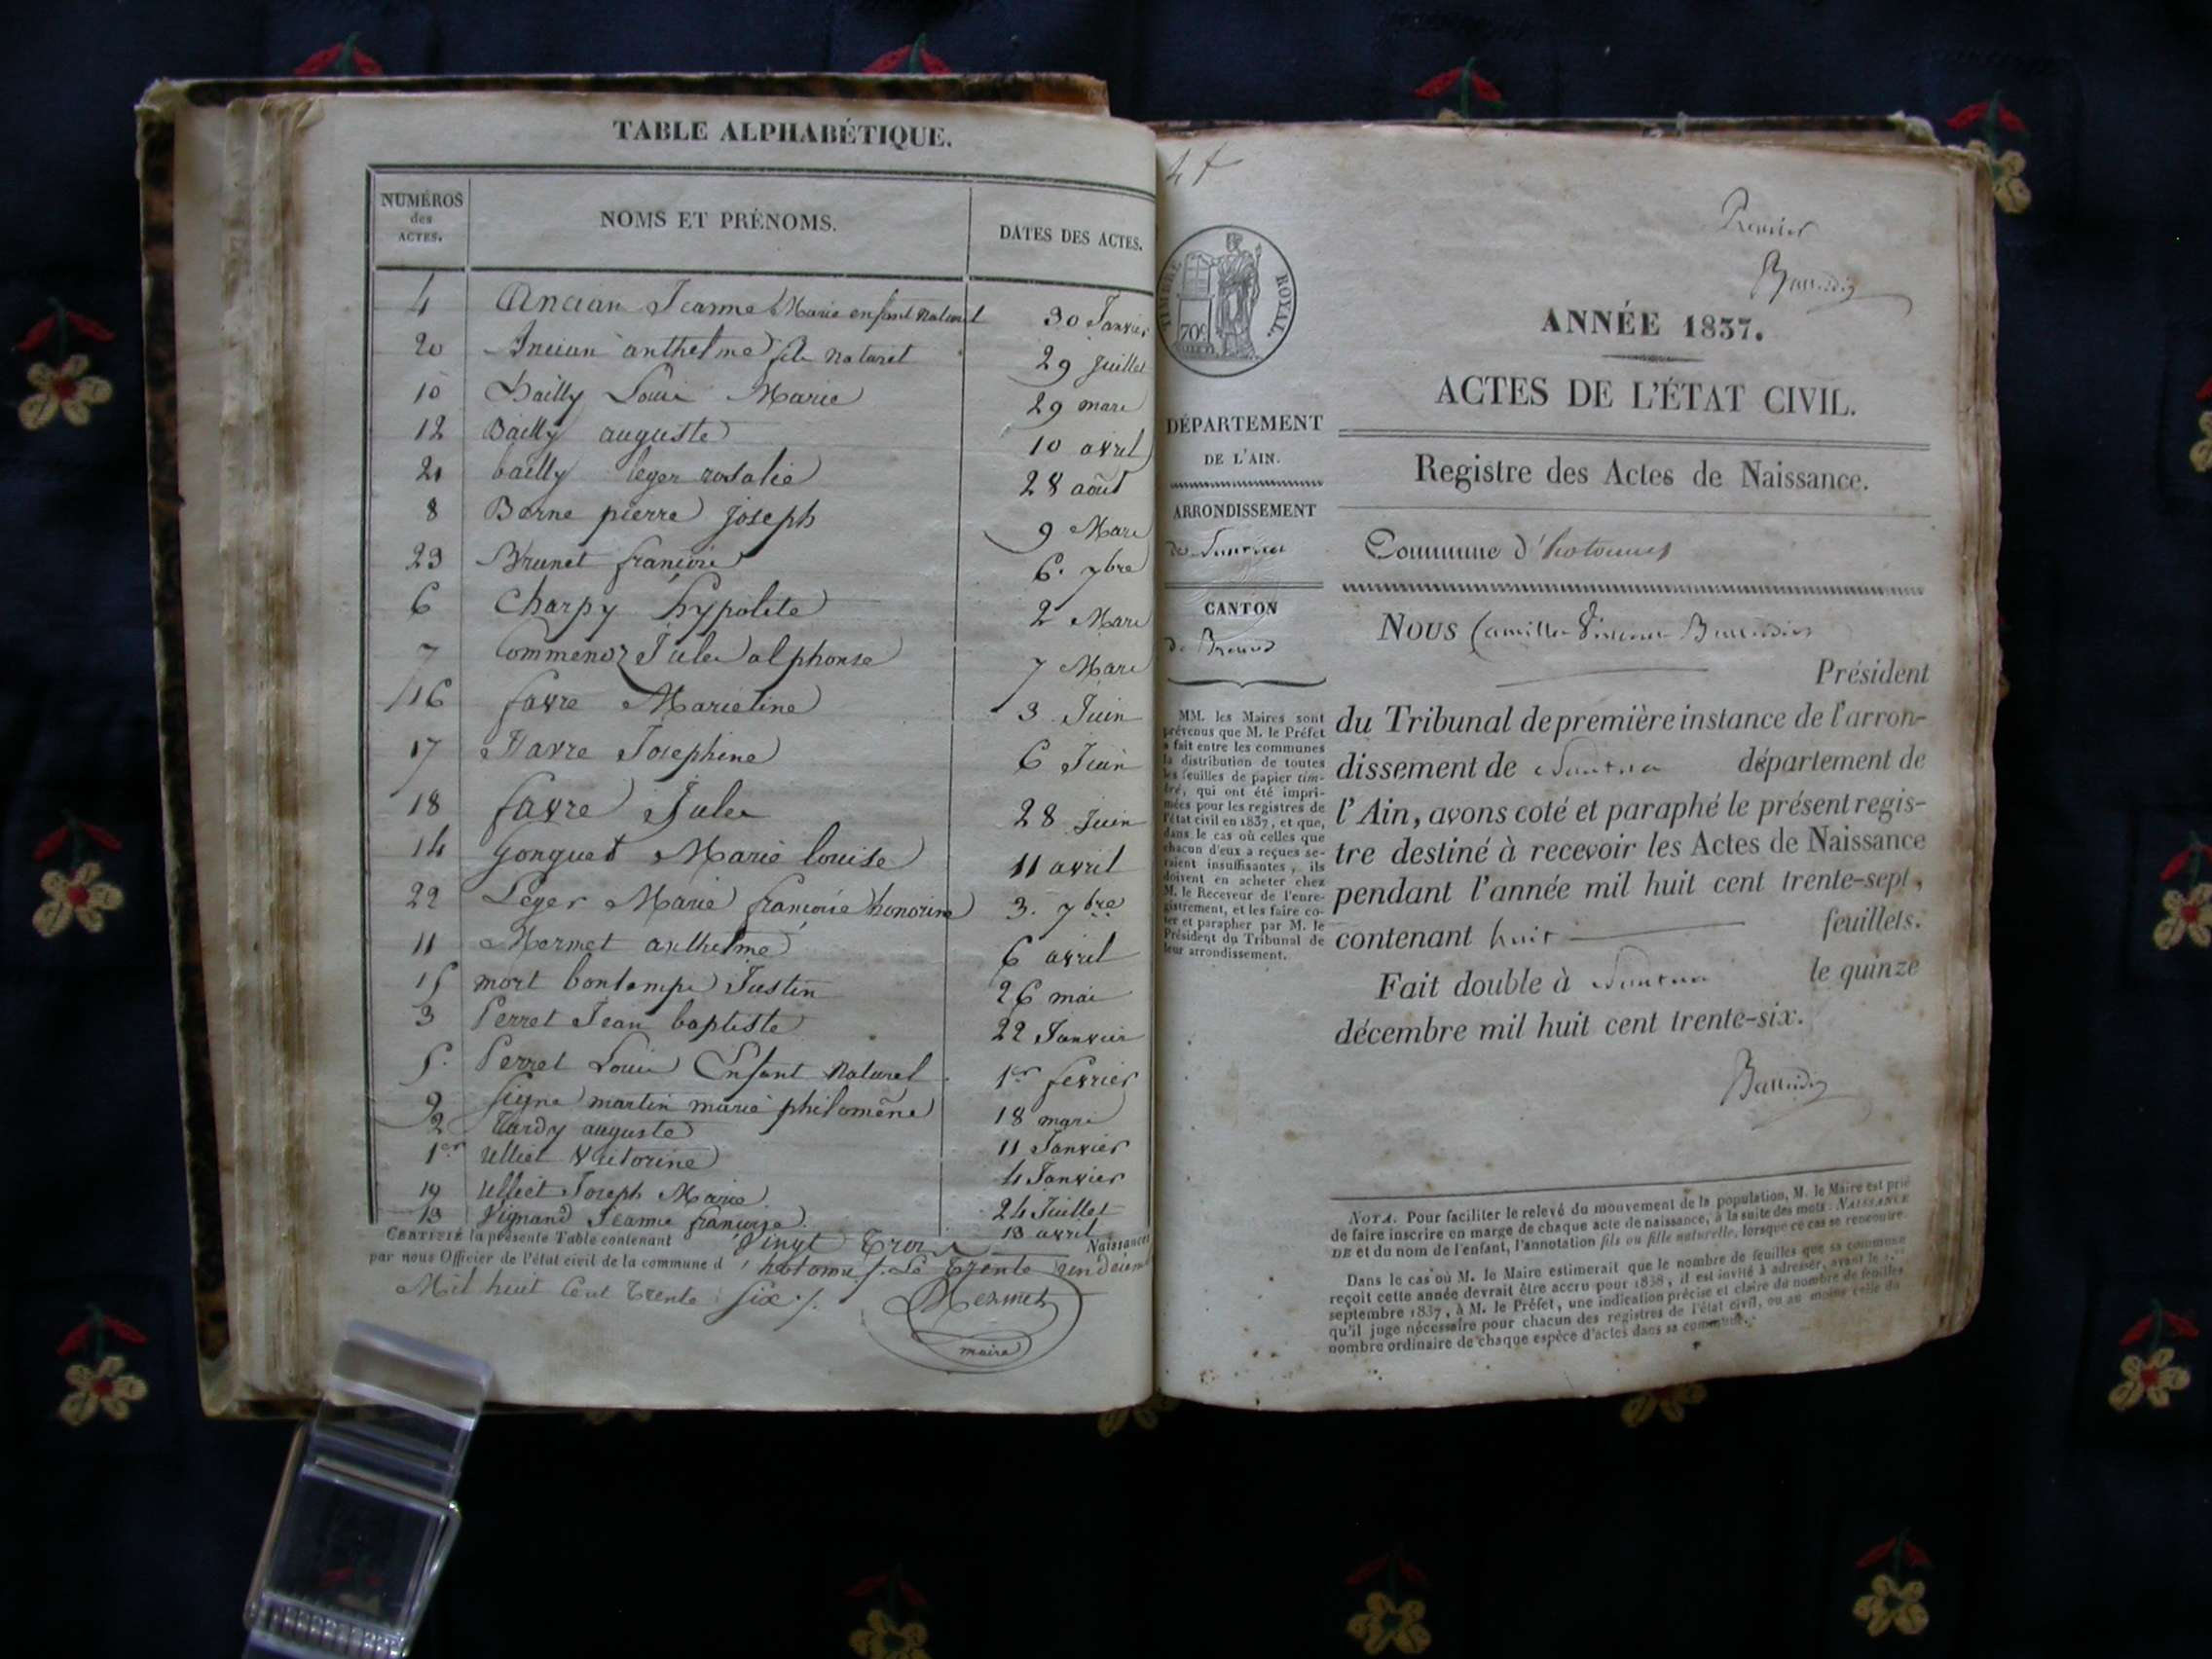 TABLE ALPHABÉTIQUE.
NUMÉROS
des
ACTES.
NOMS ET PRÉNOMS.
DATES DES ACTES.
4 Ancian Jeanne Marie enfant Naturel 30 Janvier
20 Ancian anthelme fils naturel 29 Juillet
10 Bailly Louis Marie 29 mars
12 Bailly auguste 10 avril
21 bailly leger rosalie 28 août
8 Borne pierre joseph 9 Mars
23 Brunet francois 6. 7bre
6 Charpy hypolite 2 Mars
7 Commenoz Jules alphonse 7 Mars
16 favre Marietine 3 Juin
17 Favre Josephine 6 Juin
18 favre Jules 28 Juin
14 Gonguet Marie louise 11 avril
22 Leger Marie francoise honorine 3. 7bre
11 Mermet anthelme 6 avril
15 mort bontemps Justin 26 mai
3 Perret Jean baptiste 22 Janvier
5. Perret Louis Enfant Naturel 1er fevrier
9 martin marie philomène 18 mars
2 Tardy auguste 11 Janvier
1er Ulliet Victorine 4 Janvier
19 Ulliet Joseph Marie 24 Juillet
13 Vignand Jeanne françoise. 13 avril
CERTIFIÉ la présente Table contenant Vingt Trois Naissances
par nous Officier de l'état civil de la commune d' hotonnes. Le Trente un décem
Mil huit Cent Trente Six ./.
Mermet
maire
4 f
Premier
TIMBRE ROYAL.
70c
ANNÉE 1837.
ACTES DE L'ÉTAT CIVIL.
Registre des Actes de Naissance.
Commune d'hotonnes
DÉPARTEMENT
DE L'AIN.
ARRONDISSEMENT
de Nantua
CANTON
de Brenod
MM. les Maires sont
prévenus que M. le Préfet
a fait entre les communes
la distribution de toutes
les feuilles de papier tim-
bré, qui ont été impri-
mées pour les registres de
l'état civil en 1837, et que,
dans le cas où celles que
chacun d'eux a reçues se-
raient insuffisantes, ils
doivent en acheter chez
M. le Receveur de l'enre-
gistrement, et les faire co-
ter et parapher par M. le
Président du Tribunal de
leur arrondissement.
Nous Camille
Président
du Tribunal de première instance de l'arron-
dissement de Nantua département de
l'Ain, avons coté et paraphé le présent regis-
tre destiné à recevoir les Actes de Naissance
pendant l'année mil huit cent trente-sept,
contenant huit feuillets.
Fait double à Nantua le quinze
décembre mil huit cent trente-six.
NOTA. Pour faciliter le relevé du mouvement de la population, M. le Maire est prié
de faire inscrire en marge de chaque acte de naissance, à la suite des mots : NAISSANCE
DE et du nom de l'enfant, l'annotation fils ou fille naturelle, lorsque ce cas se rencontre.
Dans le cas où M. le Maire estimerait que le nombre de feuilles que sa commune
reçoit cette année devrait être accru pour 1838, il est invité à adresser, avant le 1.er
septembre 1837, à M. le Préfet, une indication précise et claire du nombre de feuilles
qu'il juge nécessaire pour chacun des registres de l'état civil, ou au moins celle du
nombre ordinaire de chaque espèce d'actes dans sa commune.